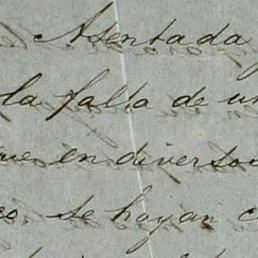 Asentada
la falta de un
que en diverso
co, se hayan c